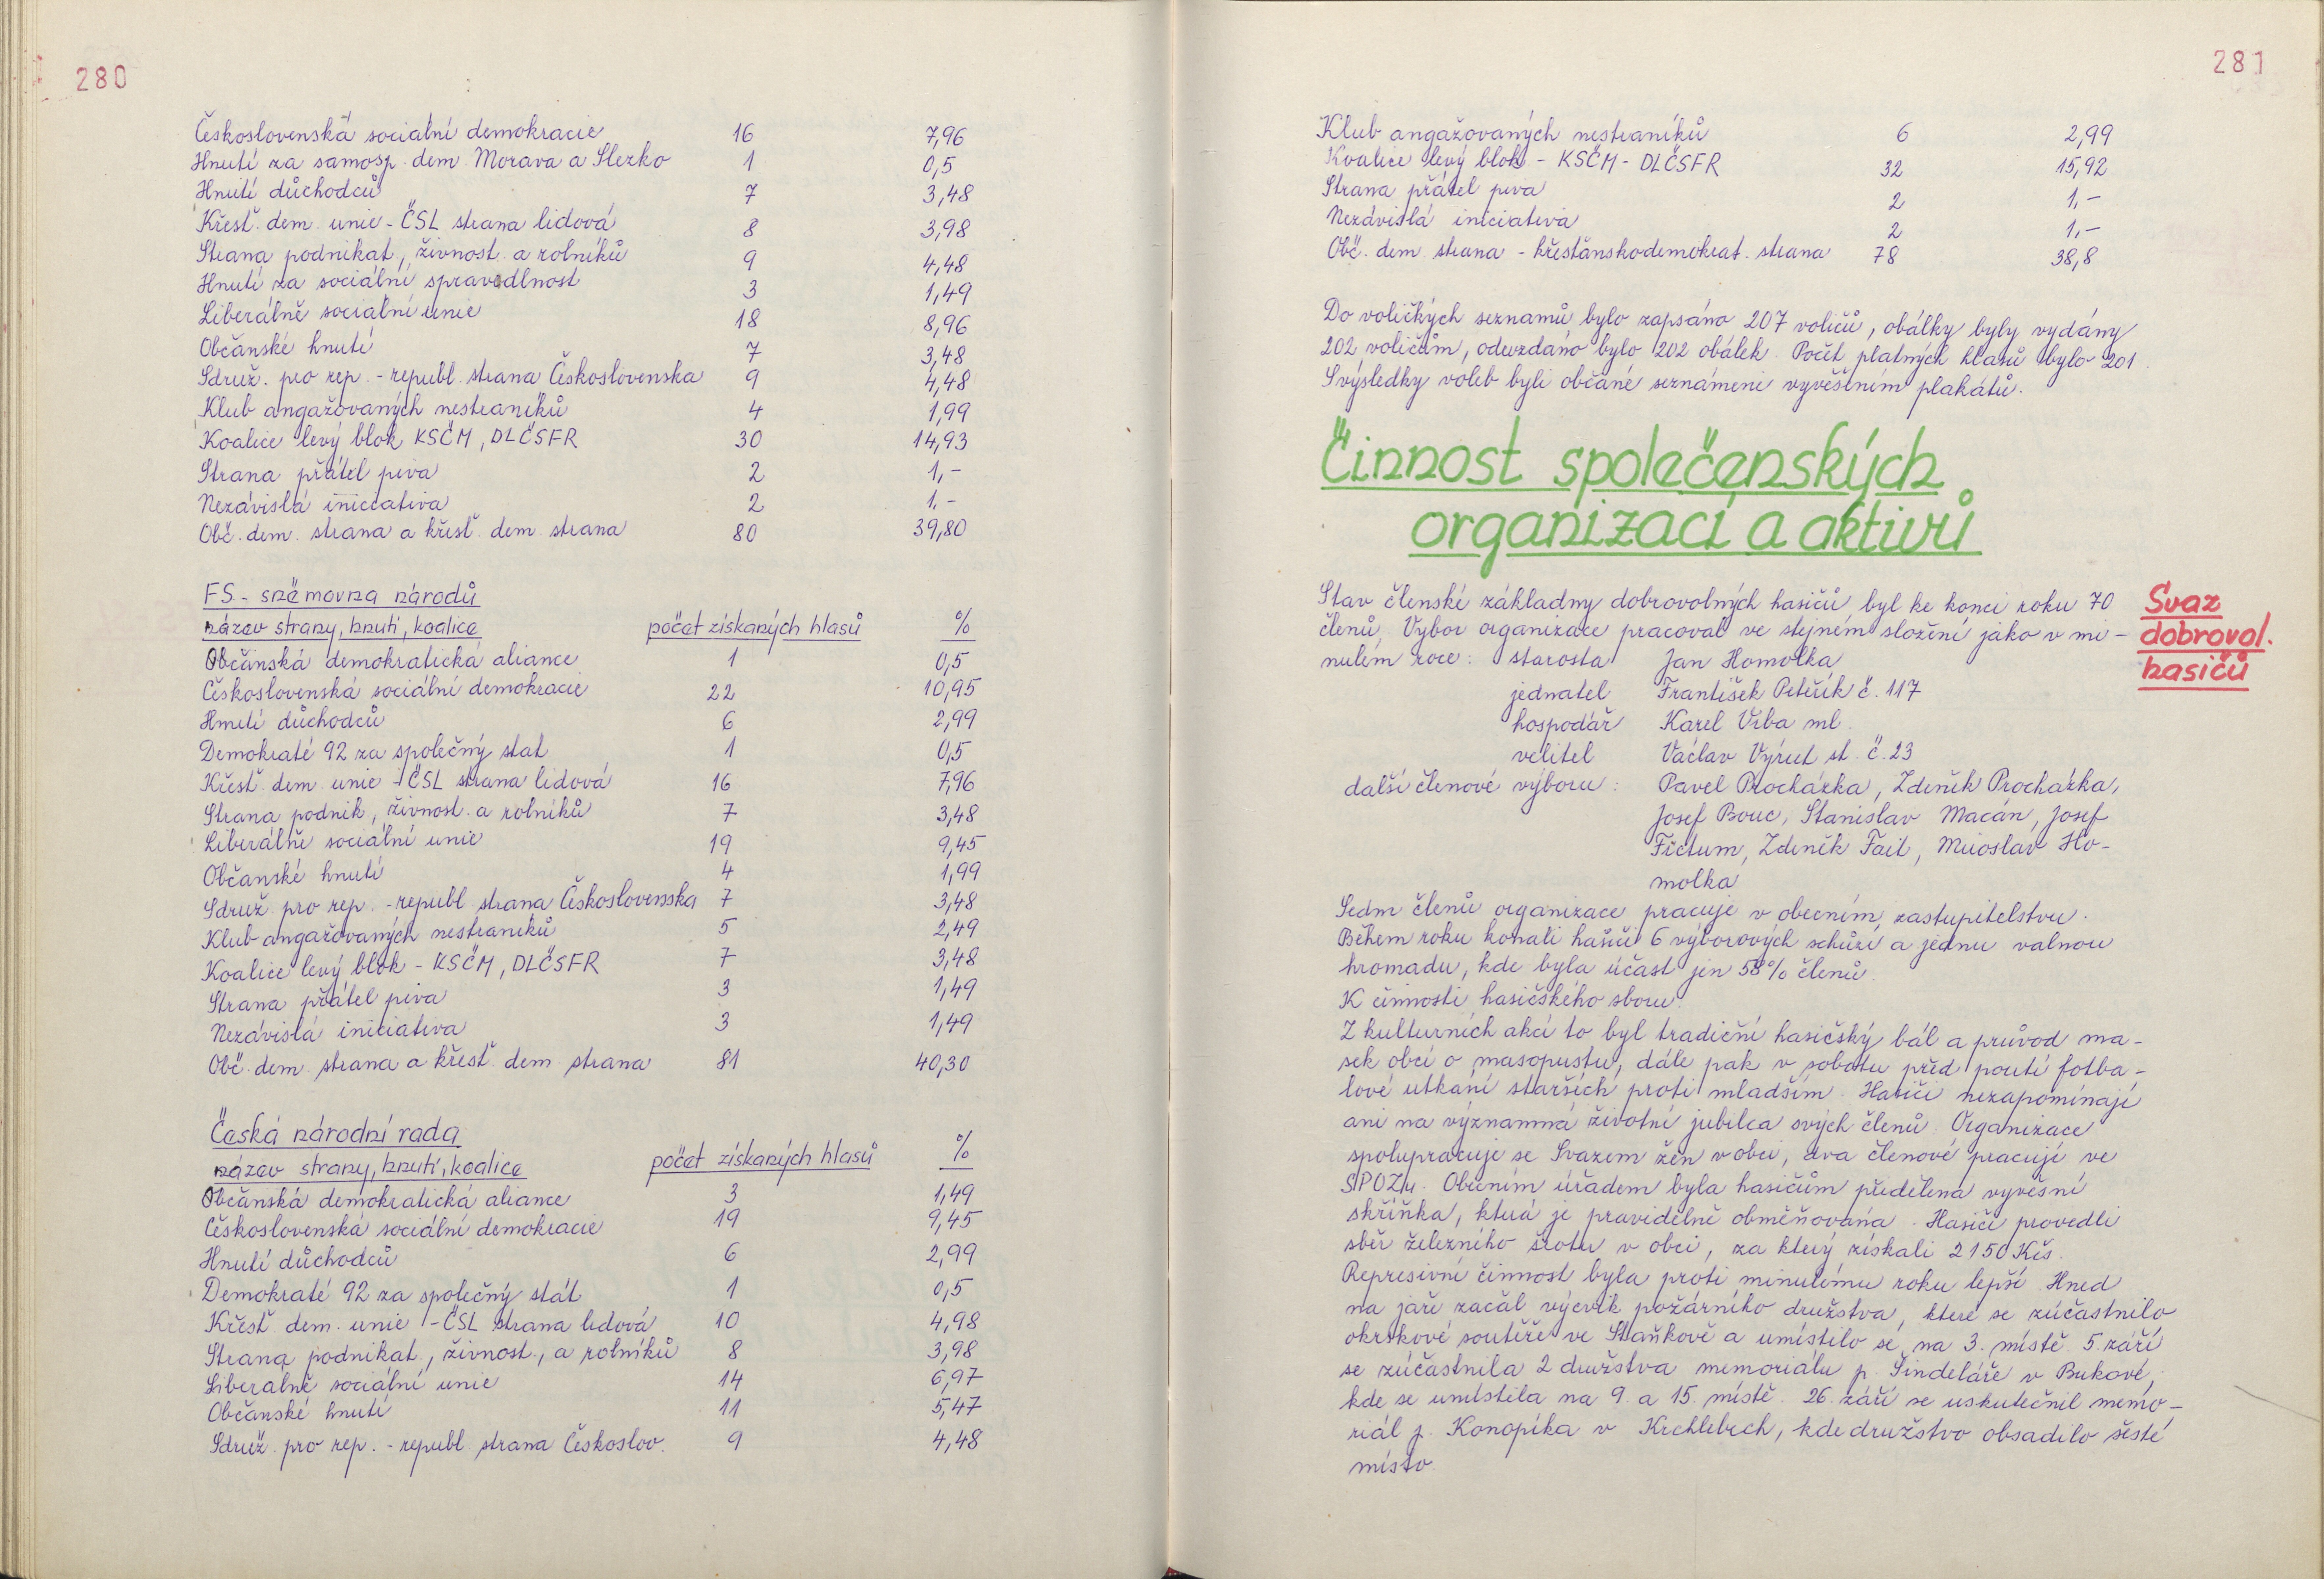 280
Československá sociální demokracie 16 7,96
Hnutí za samosp. dem. Morava a Slezko 1 0,5
Hnutí důchodců 7 3,48
Křesť. dem. unie - ČSL strana lidová 8 3,98
Strana podnikat., živnost. a rolníků 9 4,48
Hnutí za sociální spravedlnost 3 1,49
Liberálně sociální unie 18 8,96
Občanské hnutí 7 3,48
Sdruž. pro rep. - republ. strana Československa 9 4,48
Klub angažovaných nestraníků 4 1,99
Koalice levý blok KSČM, DLČSFR 30 14,93
Strana přátel piva 2 1,-
Nezávislá iniciativa 2 1,-
Obč. dem. strana a křesť. dem. strana 80 39,80
FS - sněmovna národů
název strany, hnutí, koalice počet získaných hlasů %
Občanská demokratická aliance 1 0,5
Československá sociální demokracie 22 10,95
Hnutí důchodců 6 2,99
Demokraté 92 za společný stát 1 0,5
Křesť. dem. unie - ČSL strana lidová 16 7,96
Strana podnik., živnost. a rolníků 7 3,48
Liberálně sociální unie 19 9,45
Občanské hnutí 4 1,99
Sdruž. pro rep. - republ. strana Československa 7 3,48
Klub angažovaných nestraníků 5 2,49
Koalice levý blok - KSČM, DLČSFR 7 3,48
Strana přátel piva 3 1,49
Nezávislá iniciativa 3 1,49
Obč. dem. strana a křesť. dem. strana 81 40,30
Česká národní rada
název strany, hnutí, koalice počet získaných hlasů %
Občanská demokratická aliance 3 1,49
Československá sociální demokracie 19 9,45
Hnutí důchodců 6 2,99
Demokraté 92 za společný stát 1 0,5
Křesť. dem. unie - ČSL strana lidová 10 4,98
Strana podnikat., živnost., a rolníků 8 3,98
Liberálně sociální unie 14 6,97
Občanské hnutí 11 5,47
Sdruž. pro rep. - republ. strana Českoslov. 9 4,48
281
Klub angažovaných nestraníků 6 2,99
Koalice levý blok - KSČM - DLČSFR 32 15,92
Strana přátel piva 2 1,-
Nezávislá iniciativa 2 1,-
Obč. dem. strana - křesťanskodemokrat. strana 78 38,8
Do voličkých seznamů bylo zapsáno 207 voličů, obálky byly vydány
202 voličům, odevzdáno bylo 202 obálek. Počet platných hlasů bylo 201.
S výsledky voleb byli občané seznámeni vyvěšením plakátů.
Činnost společenských
organizací a aktivů
Svaz
dobrovol.
hasičů
Stav členské základny dobrovolných hasičů byl ke konci roku 70
členů. Výbor organizace pracoval ve stejném složení jako v mi-
nulém roce: starosta Jan Homolka
jednatel František Petřík č. 117
hospodář Karel Vrba ml.
velitel Václav Výrut st. č. 23
další členové výboru: Pavel Procházka, Zdeněk Procházka,
Josef Bouc, Stanislav Macán, Josef
Fictum, Zdeněk Fait, Miroslav Ho-
molka
Sedm členů organizace pracuje v obecním zastupitelstvu.
Během roku konali hasiči 6 výborových schůzí a jednu valnou
hromadu, kde byla účast jen 58% členů.
K činnosti hasičského sboru
Z kulturních akcí to byl tradiční hasičský bál a průvod ma-
sek obcí o masopustu, dále pak v sobotu před poutí fotba-
lové utkání starších proti mladším. Hasiči nezapomínají
ani na významná životní jubilea svých členů. Organizace
spolupracuje se Svazem žen v obci, dva členové pracují ve
SPOZu. Obecním úřadem byla hasičům přidělena vývěsní
skříňka, která je pravidelně obměňována. Hasiči provedli
sběr železného šrotu v obci, za který získali 2150 Kčs.
Represivní činnost byla proti minulému roku lepší. Hned
na jaře začal výcvik požárního družstva, které se zúčastnilo
okrskové soutěže ve Staňkově a umístilo se na 3. místě. 5. září
se zúčastnila 2 družstva memoriálu p. Šindeláře v Bukové,
kde se umístila na 9. a 15. místě. 26. září se uskutečnil memo-
riál p. Konopíka v Krchlebech, kde družstvo obsadilo šesté
místo.